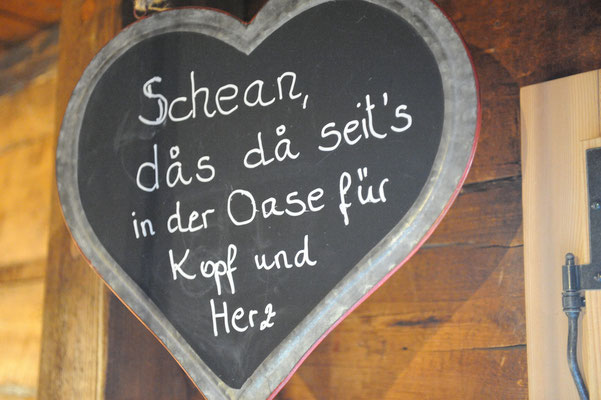 Schean,
dås då seit's
in der Oase für
Kopf und
Herz